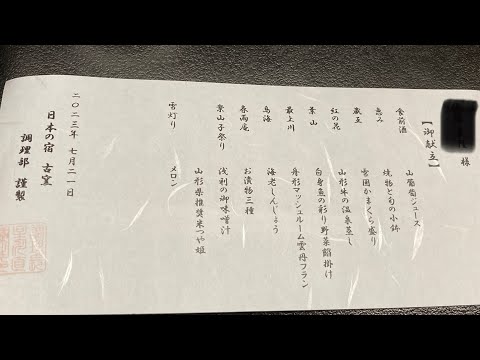 様
【御献立】
食前酒 山葡萄ジュース
恵み 焼物と旬の小鉢
蔵王 雪囲かまくら盛り
紅の花 山形牛の温泉蒸し
葉山 白身魚の彩り野菜餡掛け
最上川 舟形マッシュルーム雲丹フラン
鳥海 海老しんじょう
春雨庵 お漬物三種
案山子祭り 浅利の御味噌汁
山形県推奨米つや姫
雪灯り メロン
二〇二三年 七月二一日
日本の宿 古窯
調理部 謹製